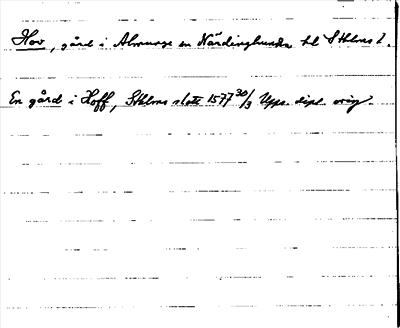 Hov, gård i Almunge sn Närdinghundra hd Sthlms l.
En gård i Hoff, Sthlms slott 1577 30/3 Upps. dipl. orig.